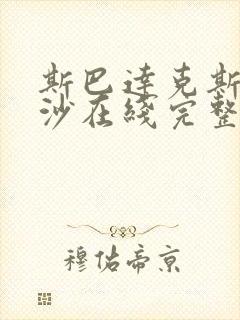 斯巴達克斯
沙在綫完整
穆佑帝京